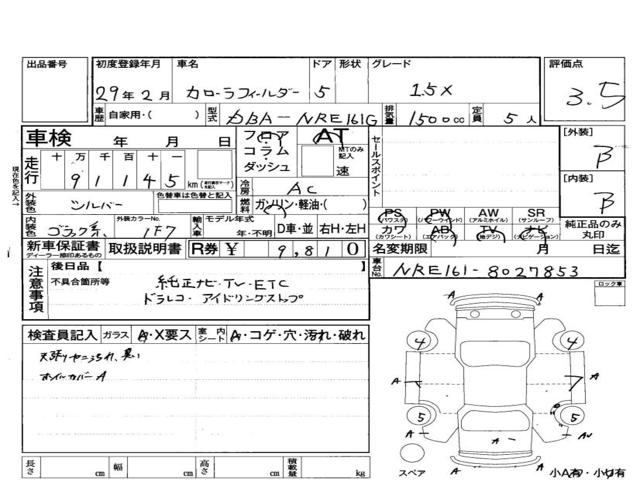 出品番号 初度登録年月 車名 ドア 形状 グレード 評価点
29年2月 カローラフィールダー 5 1.5X 3.5
車歴 自家用・( ) 型式 DBA-NRE161G 排気量 1500cc 定員 5人
車検 年 月 日 フロア コラム ダッシュ AT MTのみ記入 速 セールスポイント
[外装] B
走行 十万千百十一 91145 km
冷房 AC
[内装] B
外装色 シルバー 色替車は色替と記入 燃料 ガソリン・軽油・( )
PS (パワステ) PW (パワーウインド) AW (アルミホイル) SR (サンルーフ)
カワ (カワシート) AB (エアバック) TV (地デジ) ナビ (ナビゲーション)
純正品のみ丸印
内装色 ブラック系 外装カラーNo. 1F7 輸入車 モデル年式 年・不明 D車・並 右H・左H
新車保証書 ディーラー捺印あるもの 取扱説明書 R券 ¥ 9,810 名変期限 月 日迄
現在色を記入
注意事項 後日品【 】
不具合箇所等
純正ナビ・TV・ETC
ドラレコ・アイドリングストップ
車台No. NRE161-8027853
ロック車
検査員記入 ガラス A・X要ス 室内シート A・コゲ・穴・汚れ・破れ
天張りヤニよごれ、臭い
ホイルカバーA
4 4
A A 7 A
5 5
A A AU
A
スペア
小A有・小U有
長さ cm 幅 cm 高さ cm 積載量 kg